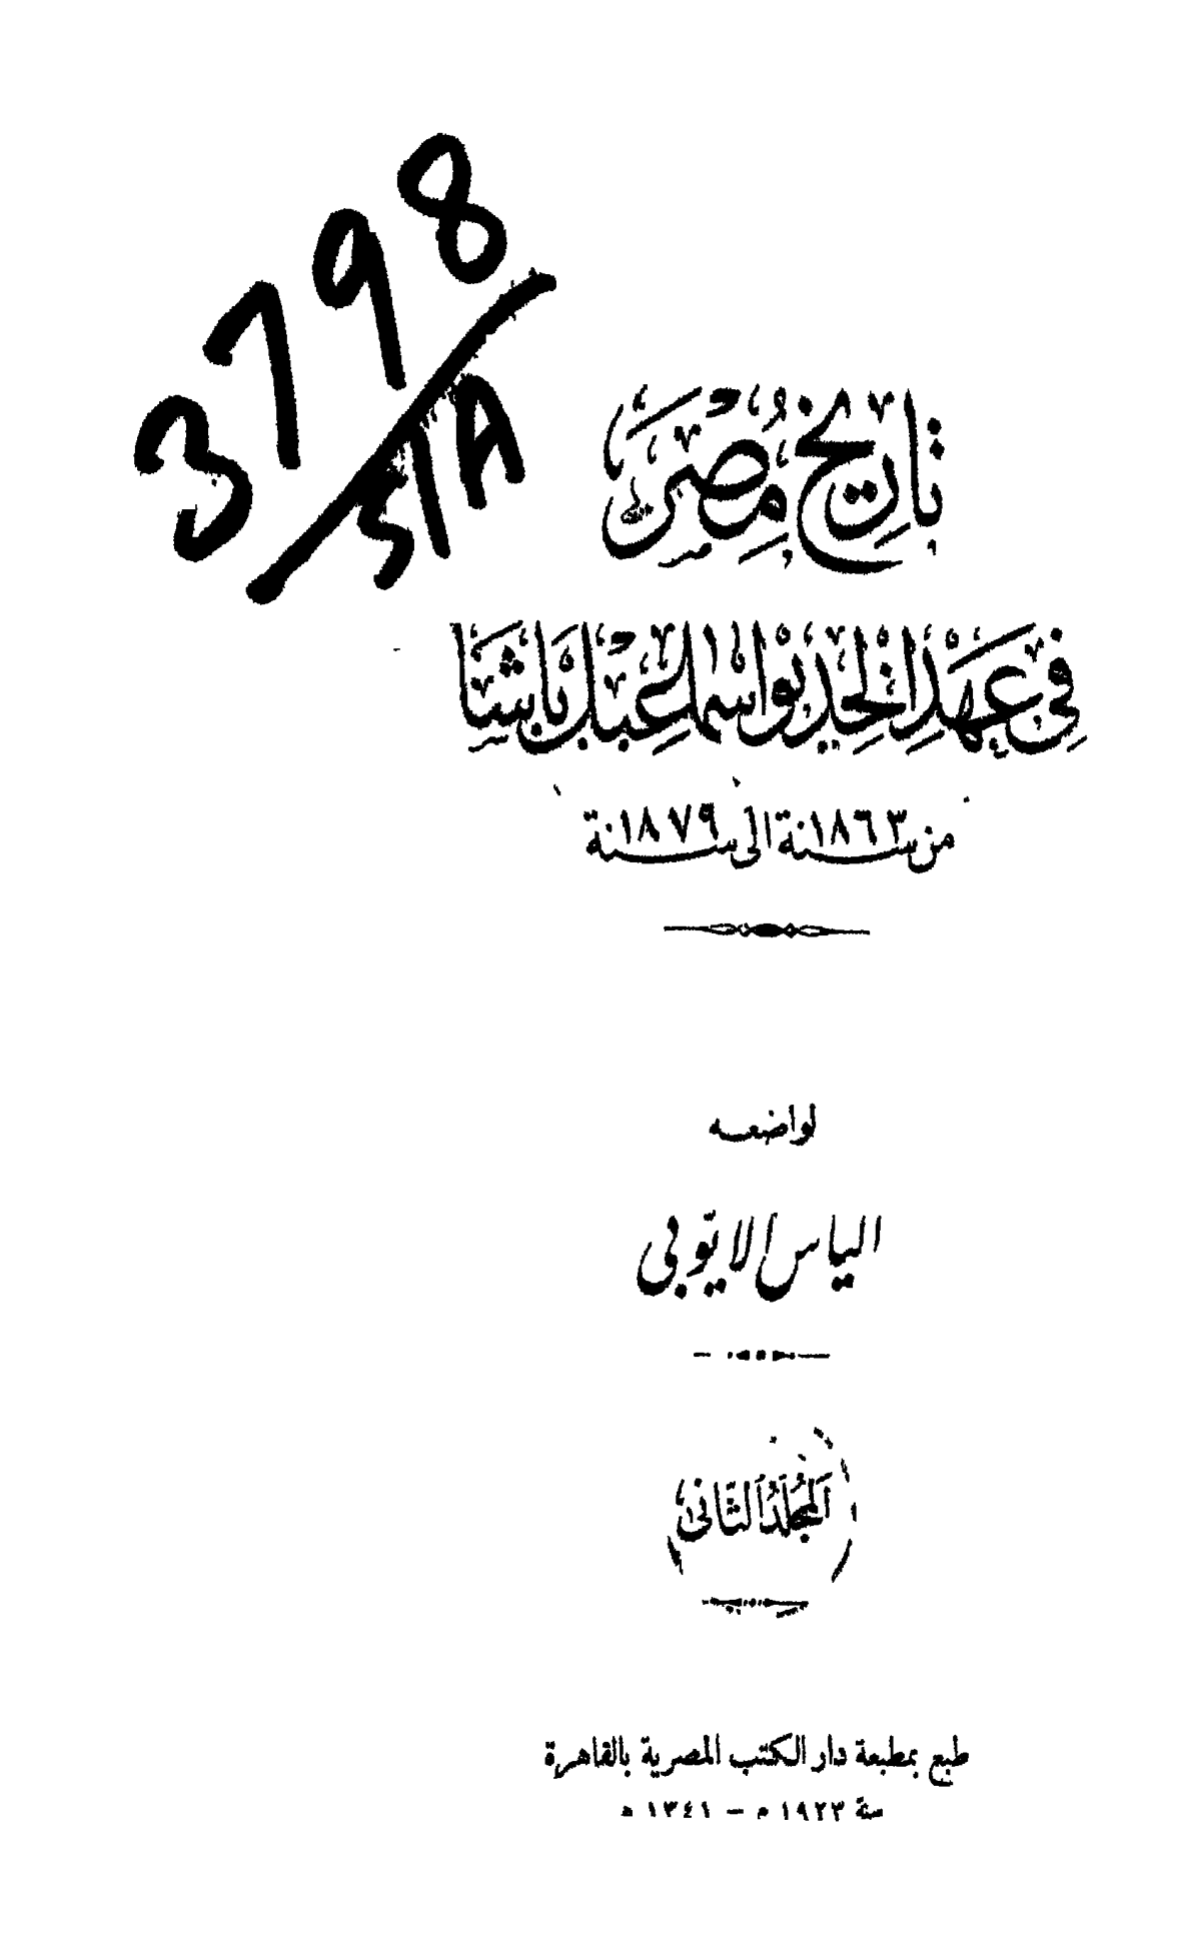 3798
SIA
تاريخ مصر
في عهد الخديو اسماعيل باشا
من سنة ١٨٦٣ الى سنة ١٨٧٩
لواضعه
الياس الايوبى
المجلد الثانى
طبع بمطبعة دار الكتب المصرية بالقاهرة
سنة ١٩٢٣ م – ١٣٤١ ه